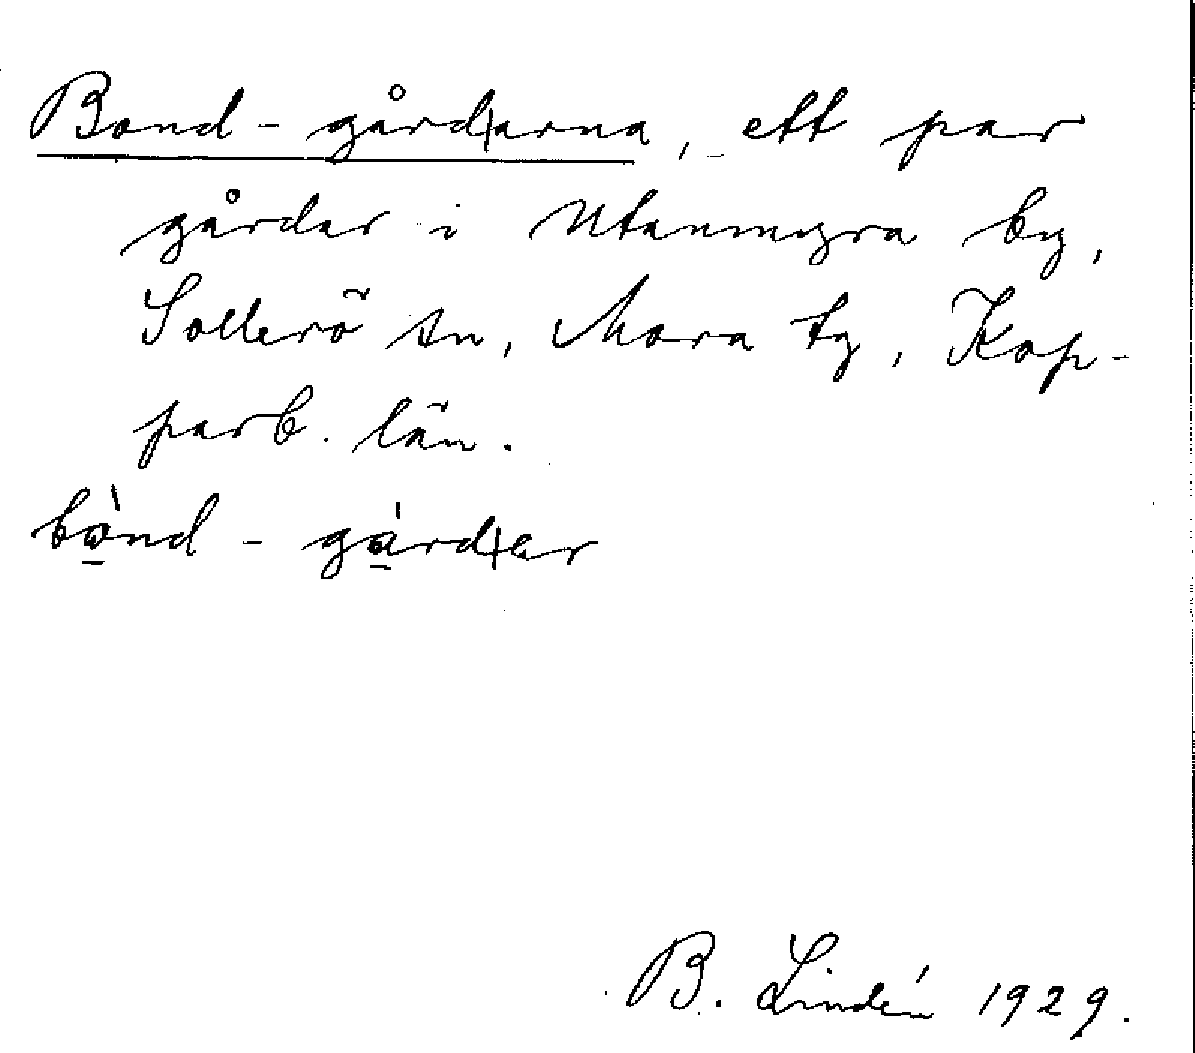 Bond-gårdarna, ett par
gårdar i Utanmyra by,
Sollerö sn, Mora tg, Kop-
parb. län.
bo̱̍nd - gå̱̍rdar
B. Lindén 1929.